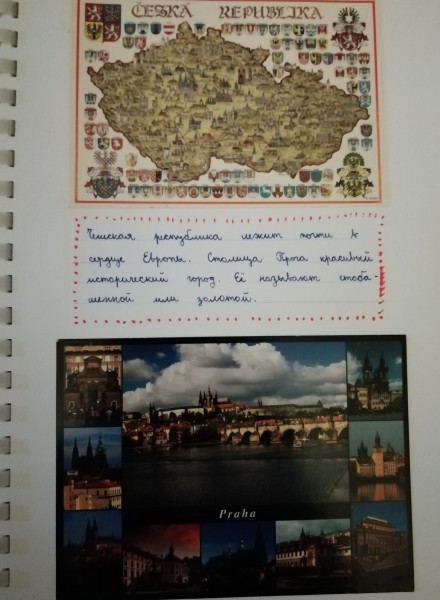 ČESKÁ REPUBLIKA
Чешская республика лежит почти в
сердце Европы. Столица Прага красивый
исторический город. Её называют стоба-
шенной или золотой.
Praha